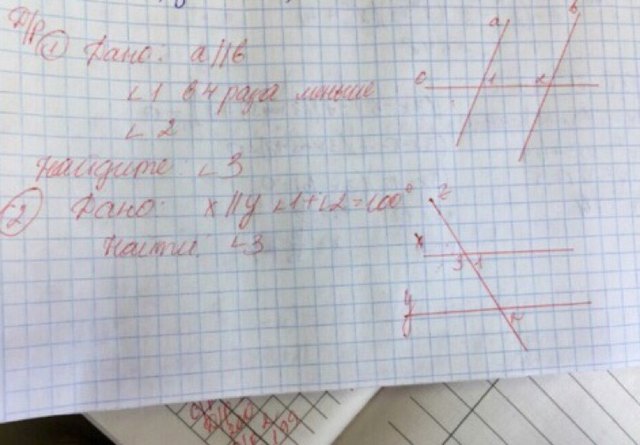 Д/р
① Дано: a||b
∠1 в 4 раза меньше
∠2
Найдите ∠3
② Дано: x||y ∠1+∠2=100°
Найти: ∠3
a
b
c
1
2
z
x
3 1
y
2